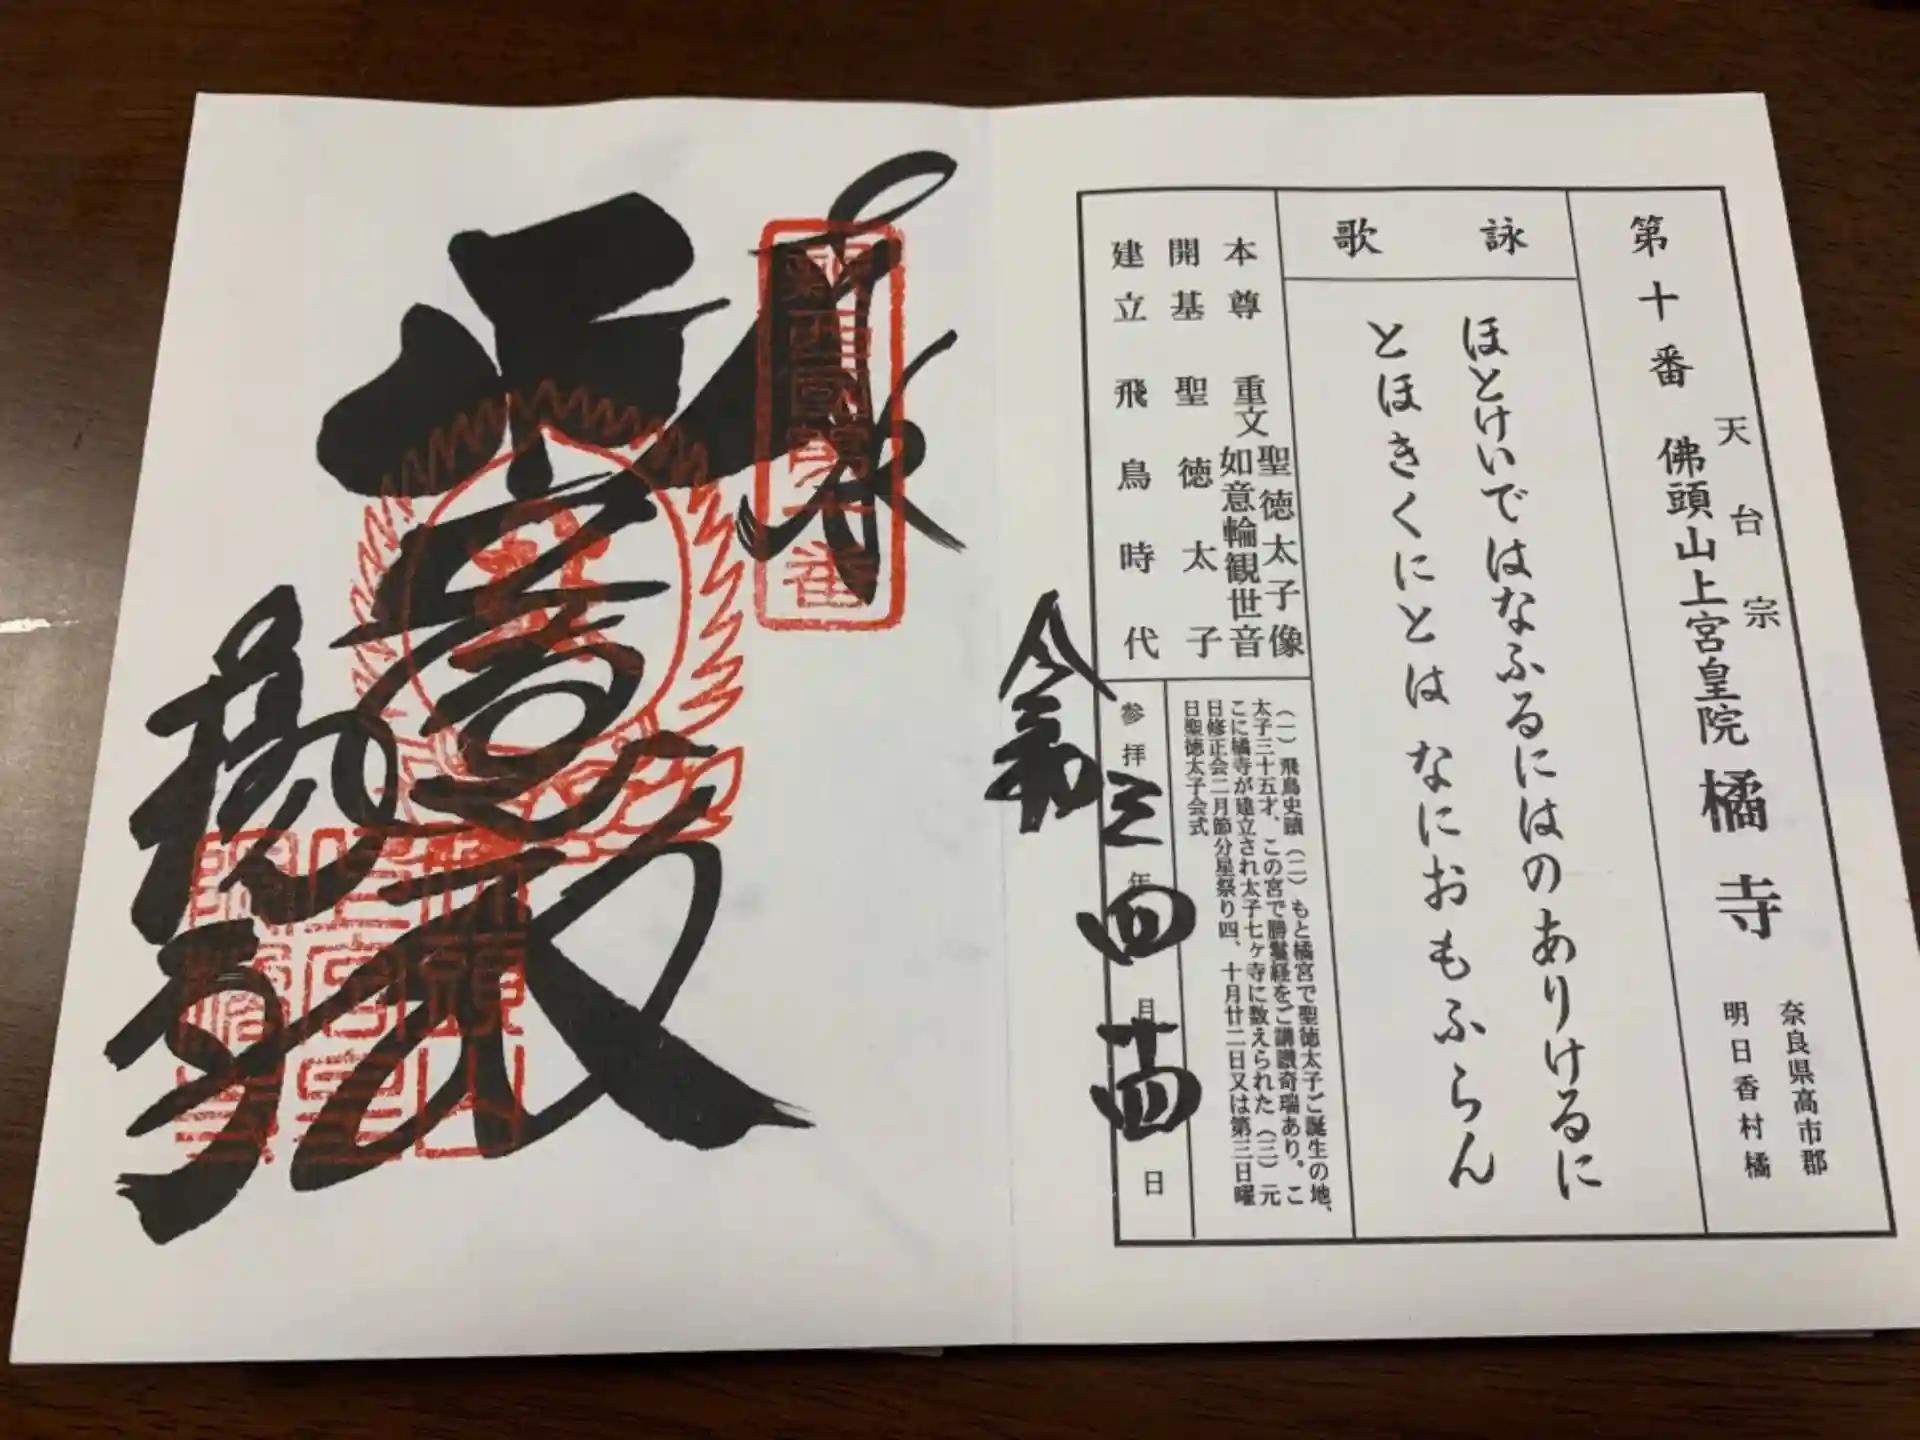 第十番
天台宗
佛頭山上宮皇院 橘寺
奈良県高市郡
明日香村橘
詠歌
ほとけいではなふるにはのありけるに
とほきくにとはなにおもふらん
本尊 重文 聖徳太子像
如意輪観世音
開基 聖徳太子
建立 飛鳥時代
(一)飛鳥史蹟(二)もと橘宮で聖徳太子ご誕生の地、
太子三十五才、この宮で勝鬘経をご講讃奇瑞あり。こ
こに橘寺が建立され太子七ヶ寺に数えられた(三)元
日修正会二月節分星祭り四、十月廿二日又は第三日曜
日聖徳太子会式
参拝 令和三年四月十四日
奉拝
新西国第十番
橘寺
佛頭山
上宮皇
院橘寺